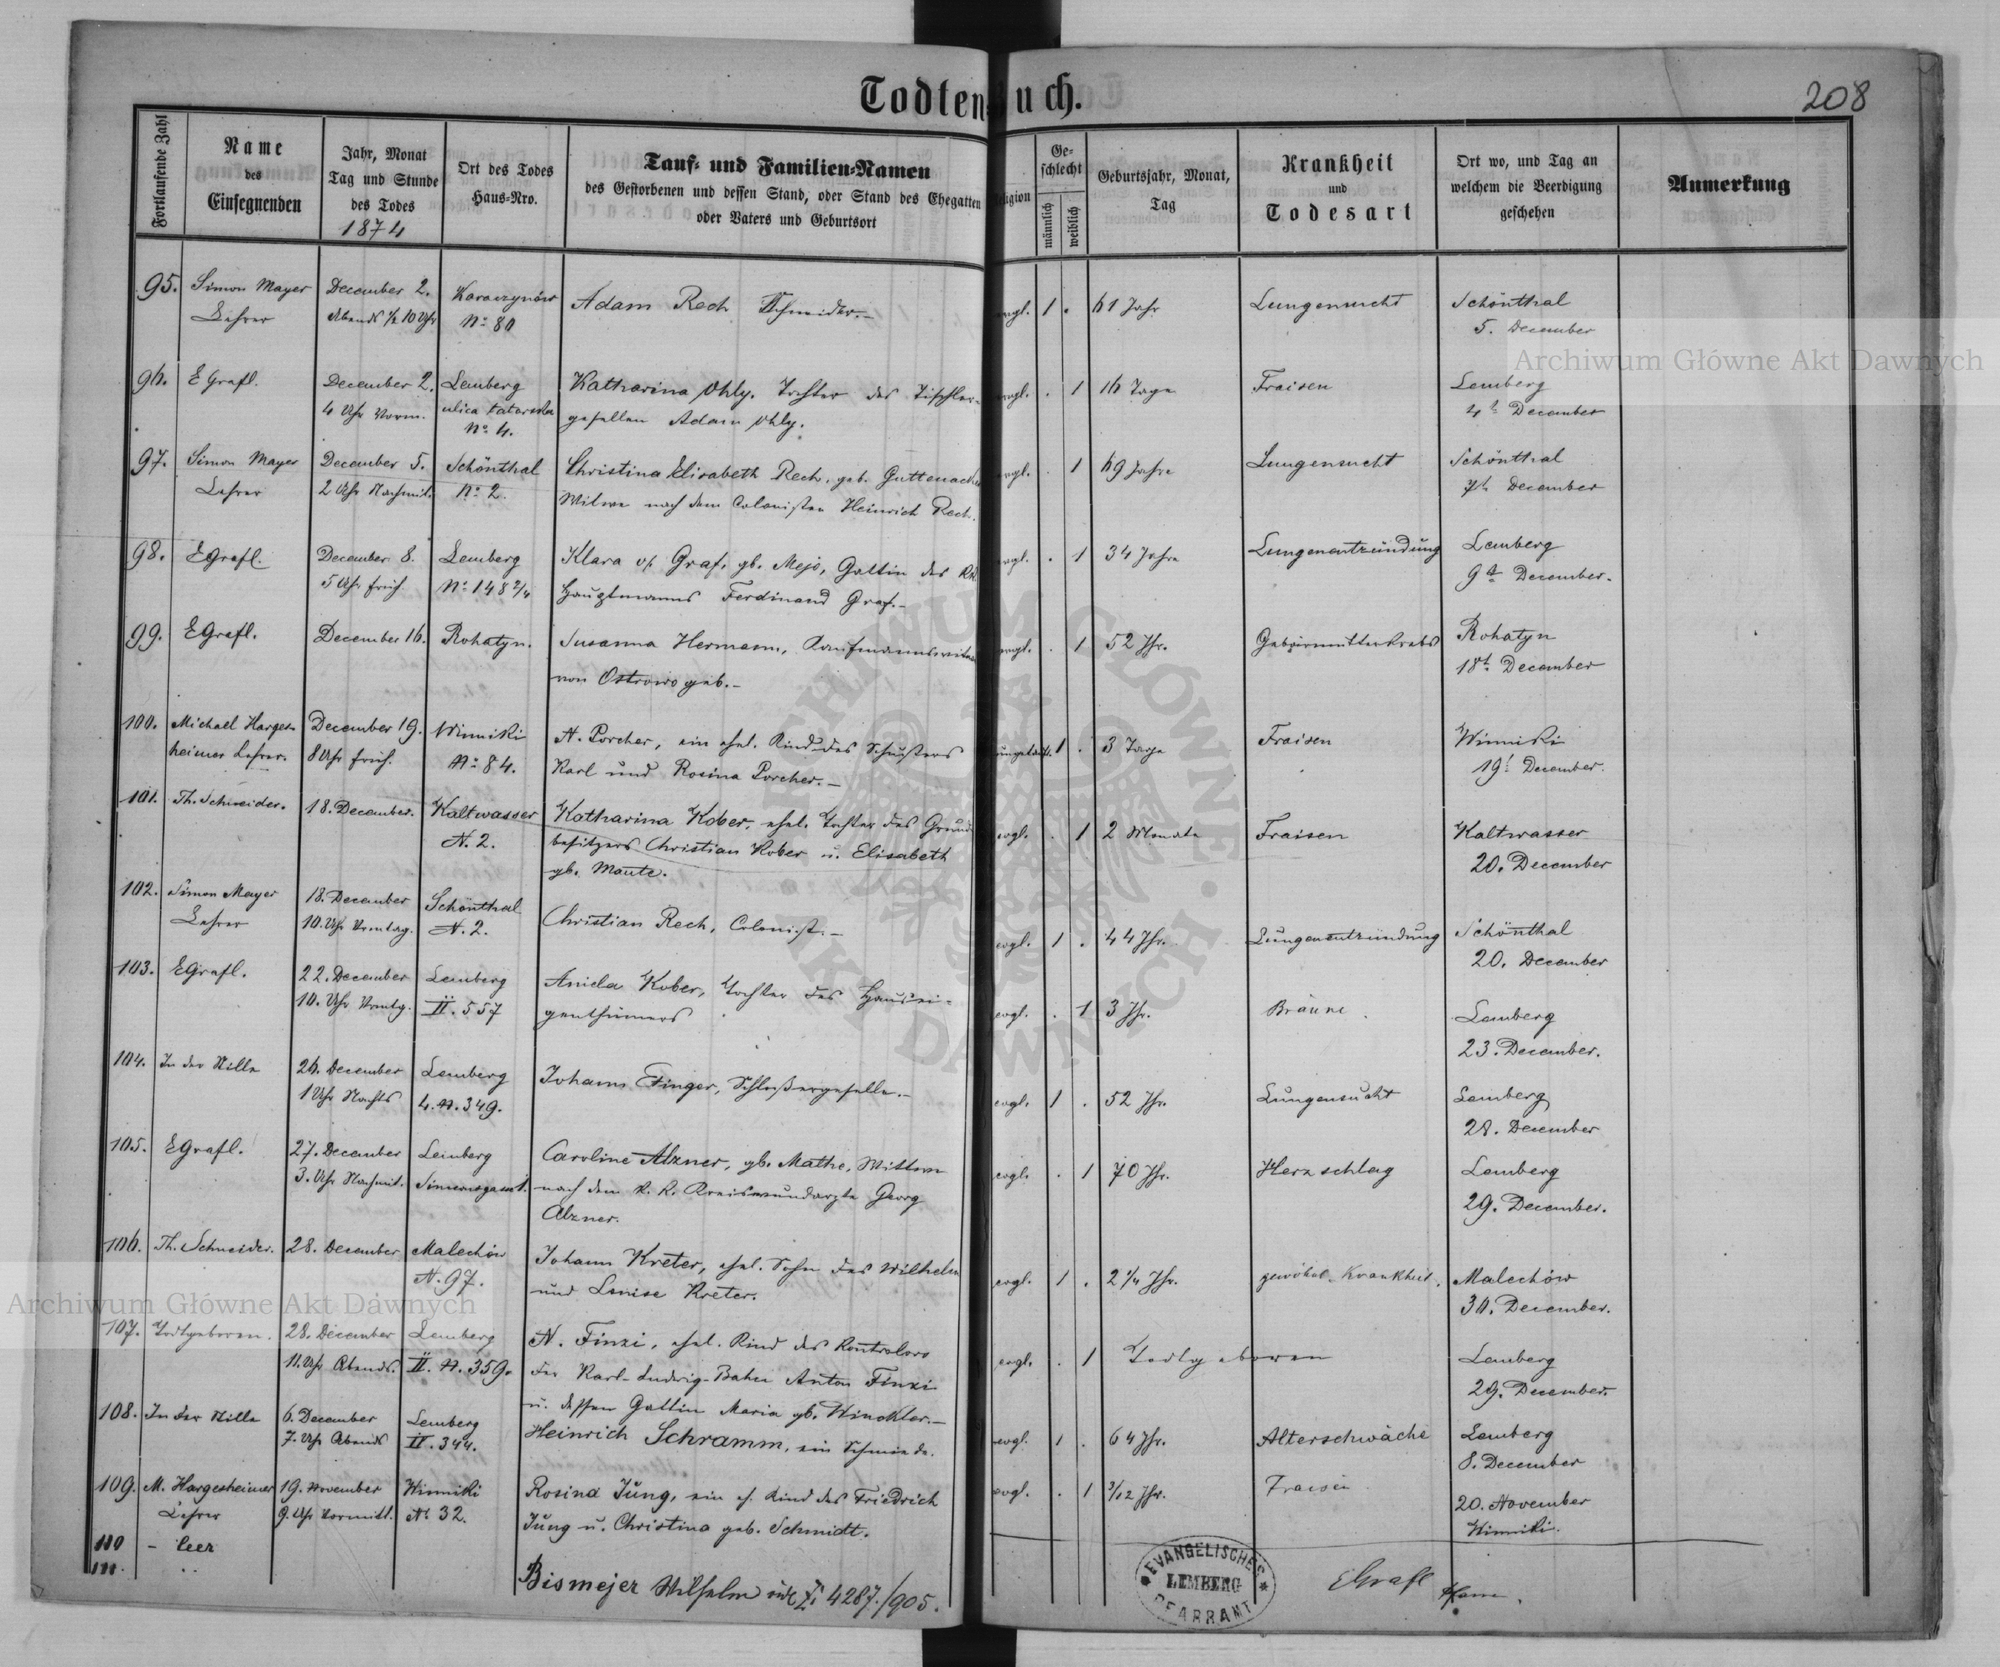 Todtenbuch.
208
Fortlaufende Zahl
Name
des
Einsegnenden
Jahr, Monat
Tag und Stunde
des Todes
1874
Ort des Todes
Haus-Nro.
Tauf- und Familien-Namen
des Gestorbenen und dessen Stand, oder Stand des Ehegatten
oder Vaters und Geburtsort
Religion
Ge-
schlecht
männlich
weiblich
Geburtsjahr, Monat,
Tag
Krankheit
und
Todesart
Ort wo, und Tag an
welchem die Beerdigung
geschehen
Anmerkung
95. Simon Mayer December 2. Karaczynów Adam Rech Schneider.- evgl. 1 . 61 Jahr Lungensucht Schönthal
Lehrer Abends ½ 10 Uhr No 80 5. December
96. EGrafl. December 2. Lemberg Katharina Ohly, Tochter des Tischler- evgl. . 1 16 Tage Fraisen Lemberg
4 Uhr Vorm. ulica tatarska gesellen Adam Ohly. 4t December
No 4.
97. Simon Mayer December 5. Schönthal Christina Elisabeth Rech, geb. Guttenacher evgl. . 1 69 Jahre Lungensucht Schönthal
Lehrer 2 Uhr Nachmit. No 2. Witwe nach dem Colonisten Heinrich Rech. 7t December
98. EGrafl. December 8. Lemberg Klara v. Graf, gb. Mejo, Gattin des KK. evgl. . 1 34 Jahre Lungenentzündung Lemberg
5 Uhr früh. No 148 2/4 Hauptmanns Ferdinand Graf.- 9t December.
99. EGrafl. December 16. Rohatyn. Susanna Hermann, Kaufmannswitwe evgl. . 1 52 Jhr. Gebärmutterkrebs Rohatyn
von Ostrowo geb.- 18t December
100. Michael Harges- December 19. Winniki N. Porcher, ein ehel. Kind des Schusters ungetauft 1 . 3 Tage Fraisen Winniki
heimer Lehrer. 8 Uhr früh. No 84. Karl und Rosina Porcher.- 19t December.
101. Th. Schneider. 18. December. Kaltwasser Katharina Kober, ehel. Tochter des Grund- evgl. . 1 2 Monate Fraisen Kaltwasser
N. 2. besitzers Christian Kober u. Elisabeth 20. December
gb. Maute.
102. Simon Mayer 18. December Schönthal Christian Rech, Colonist.- evgl. 1 . 44 Jhr. Lungenentzündung Schönthal
Lehrer 10. Uhr Vrmtag. N. 2. 20. December
103. EGrafl. 22. December Lemberg Aniela Kober, Tochter des Hausei- evgl. . 1 3 Jhr. Bräune Lemberg
10. Uhr Vrmtg. II. 557 genthümers 23. December.
104. In der Stille 26. December Lemberg Johann Finger, Schlossergeselle.- evgl. 1 . 52 Jhr. Lungensucht Lemberg
1 Uhr Nachts 4. N. 349. 28. December
105. EGrafl. 27. December Lemberg Caroline Alzner, gb. Mathe, Wittwe evgl. . 1 70 Jhr. Herzschlag Lemberg
3. Uhr Nachmit. nach dem k. k. Kreiswundarzte Georg 29. December.
Alzner.
106. Th. Schneider. 28. December Malechów Johann Kreter, ehel. Sohn des Wilhelm evgl. 1 . 2 ¼ Jhr. gewöhnl. Krankheit. Malechów
N. 97. und Louise Kreter. 30. December.
107. Todtgeboren. 28. December Lemberg N. Finzi, ehel. Kind des Kontrolors evgl. . 1 Todtgeboren Lemberg
11. Uhr Abends. II. N. 359. der Karl-Ludwig-Bahn Anton Finzi 29. December.
u. dessen Gattin Maria gb. Winckler.-
108. In der Stille 6. December Lemberg Heinrich Schramm, ein Schmiede. evgl. 1 . 64 Jhr. Altersschwäche Lemberg
7. Uhr Abends II. 344. 8. December
109. M. Hargesheimer 19. November Winniki Rosina Jüng, ein eh. Kind des Friedrich evgl. . 1 3/12 Jhr. Fraisen 20. November
Lehrer 9. Uhr Vormitt. N. 32. Jüng u. Christina geb. Schmidt. Winniki.
110 - leer
111. ..
Bismejer Wilhelm Z. 4287./905.
EVANGELISCHES
LEMBERG
PFARRAMT
EGrafl
Archiwum Główne Akt Dawnych
Archiwum Główne Akt Dawnych
ARCHIWUM GŁÓWNE · AKT DAWNYCH ·